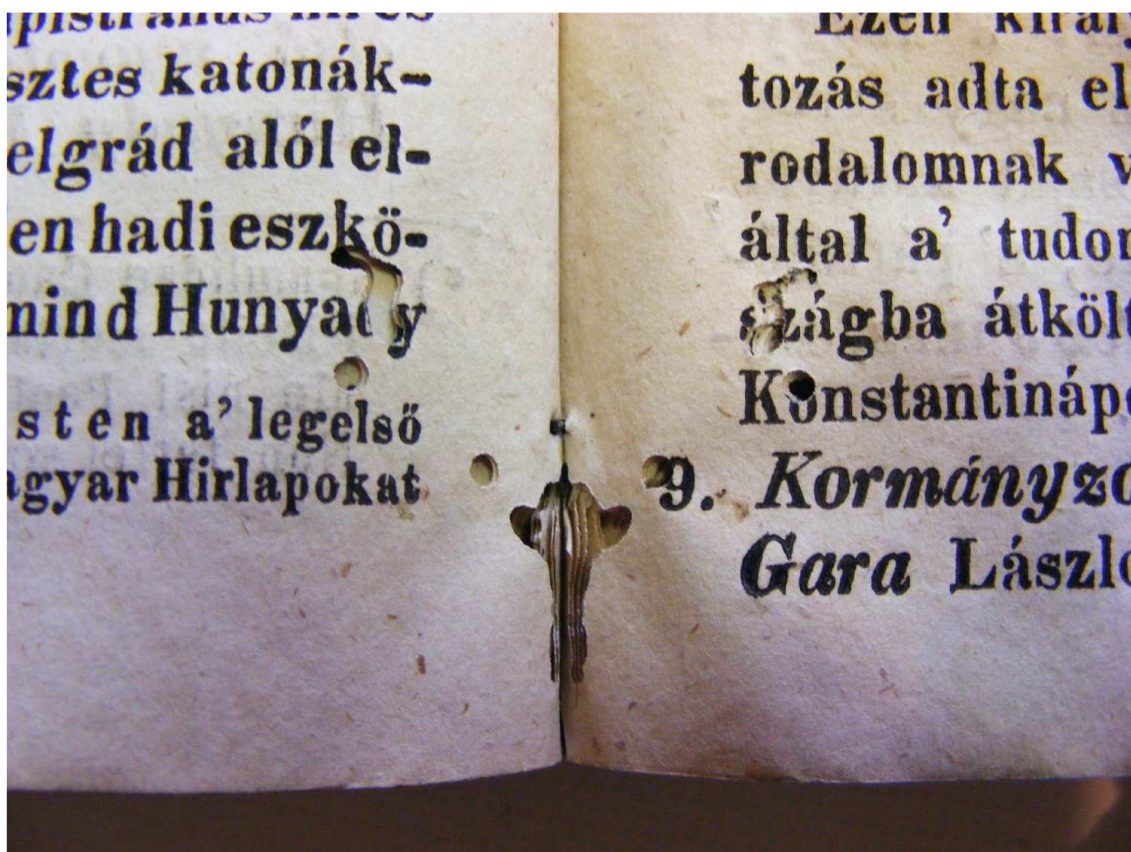 sztes katonák-
elgrád alól el-
en hadi eszkö-
mind Hunyady
sten a' legelső
agyar Hirlapokat
Ezen király
tozás adta el
rodalomnak v
által a' tudom
szágba átkölt
Konstantinápo
9. Kormányzo
Gara László